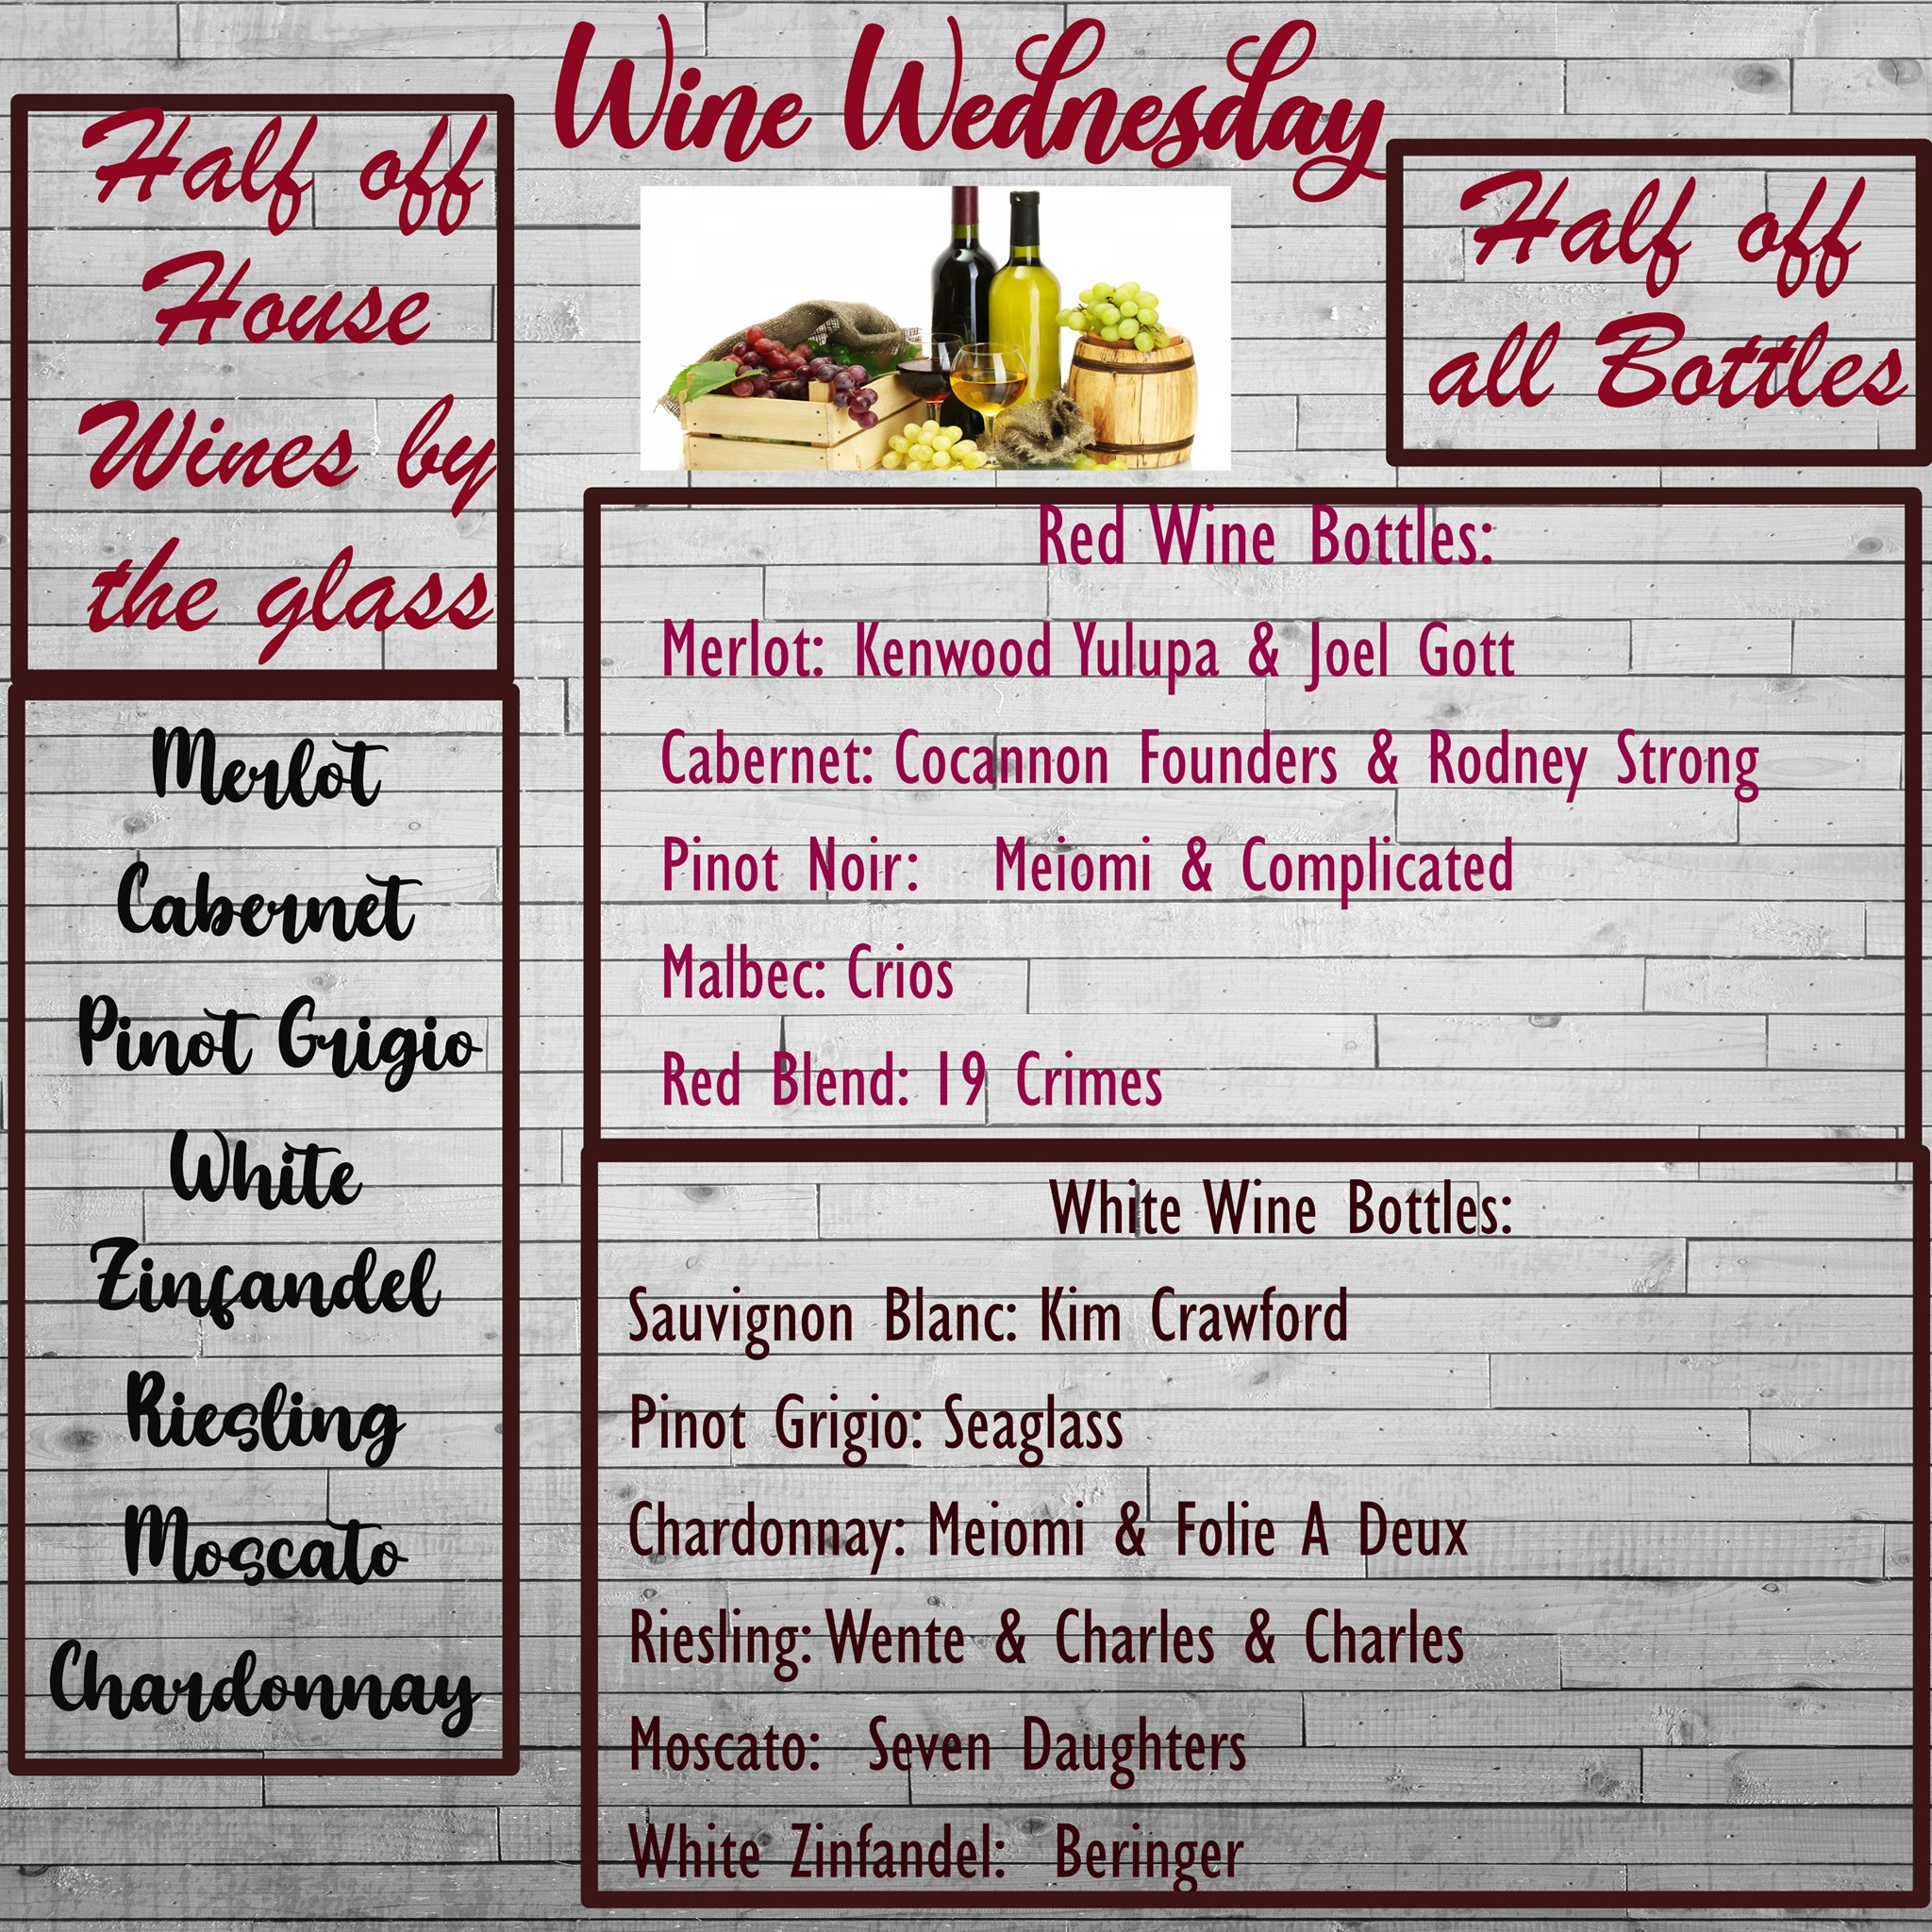 Wine Wednesday
Half off
House
Wines by
the glass
Merlot
Cabernet
Pinot Grigio
White
Zinfandel
Riesling
Moscato
Chardonnay
Half off
all Bottles
Red Wine Bottles:
Merlot: Kenwood Yulupa & Joel Gott
Cabernet: Cocannon Founders & Rodney Strong
Pinot Noir: Meiomi & Complicated
Malbec: Crios
Red Blend: 19 Crimes
White Wine Bottles:
Sauvignon Blanc: Kim Crawford
Pinot Grigio: Seaglass
Chardonnay: Meiomi & Folie A Deux
Riesling: Wente & Charles & Charles
Moscato: Seven Daughters
White Zinfandel: Beringer